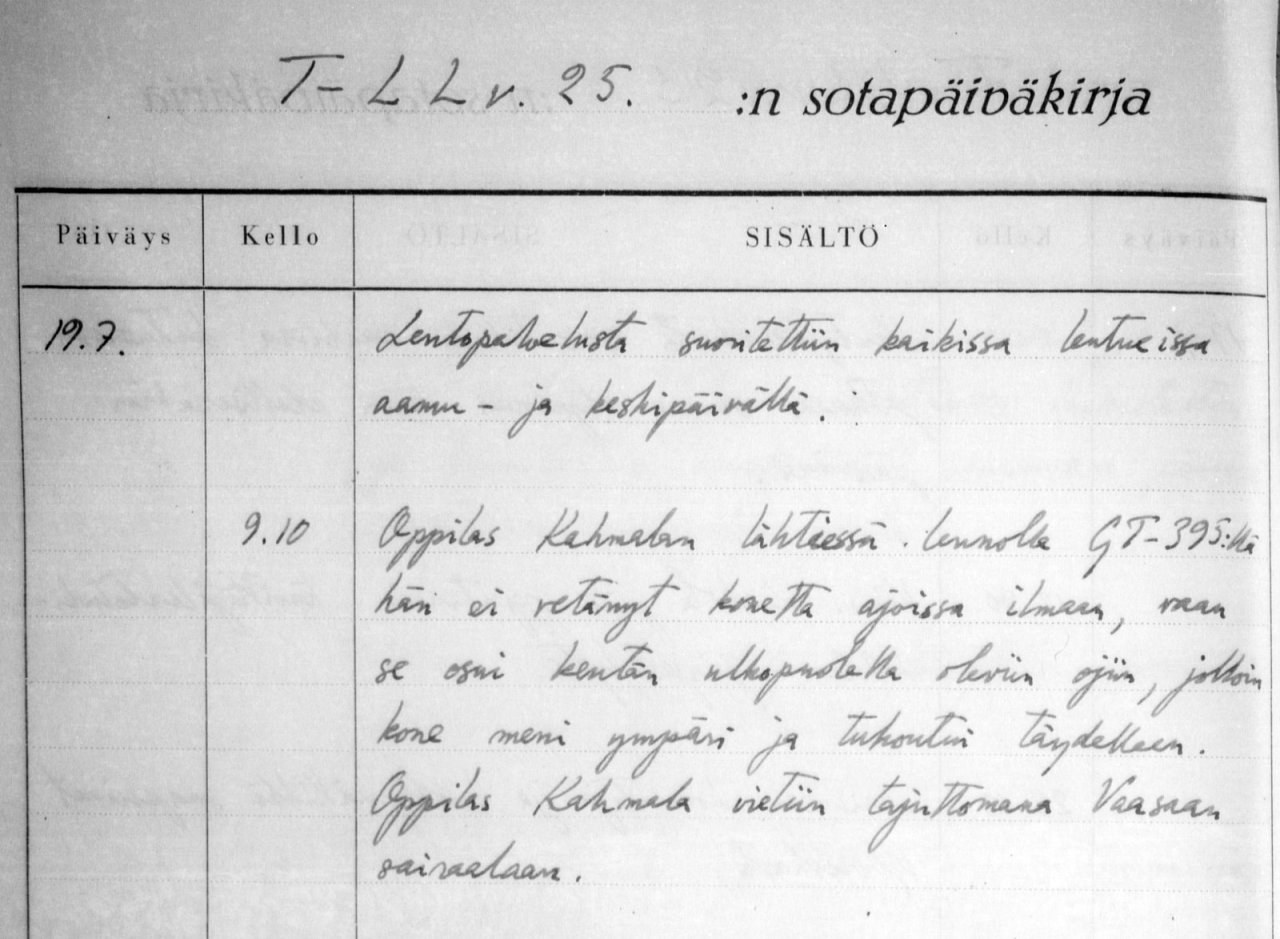 T-LLv. 25. :n sotapäiväkirja
Päiväys Kello SISÄLTÖ
19.7. Lentopalvelusta suoritettiin kaikissa lentueissa
aamu- ja keskipäivällä.
9.10 Oppilas Kahmalan lähtiessä lennolle GT-395:llä
hän ei vetänyt konetta ajoissa ilmaan, vaan
se osui kentän ulkopuolella oleviin ojiin, jolloin
kone meni ympäri ja tuhoutui täydelleen.
Oppilas Kahmala vietiin tajuttomana Vaasaan
sairaalaan.